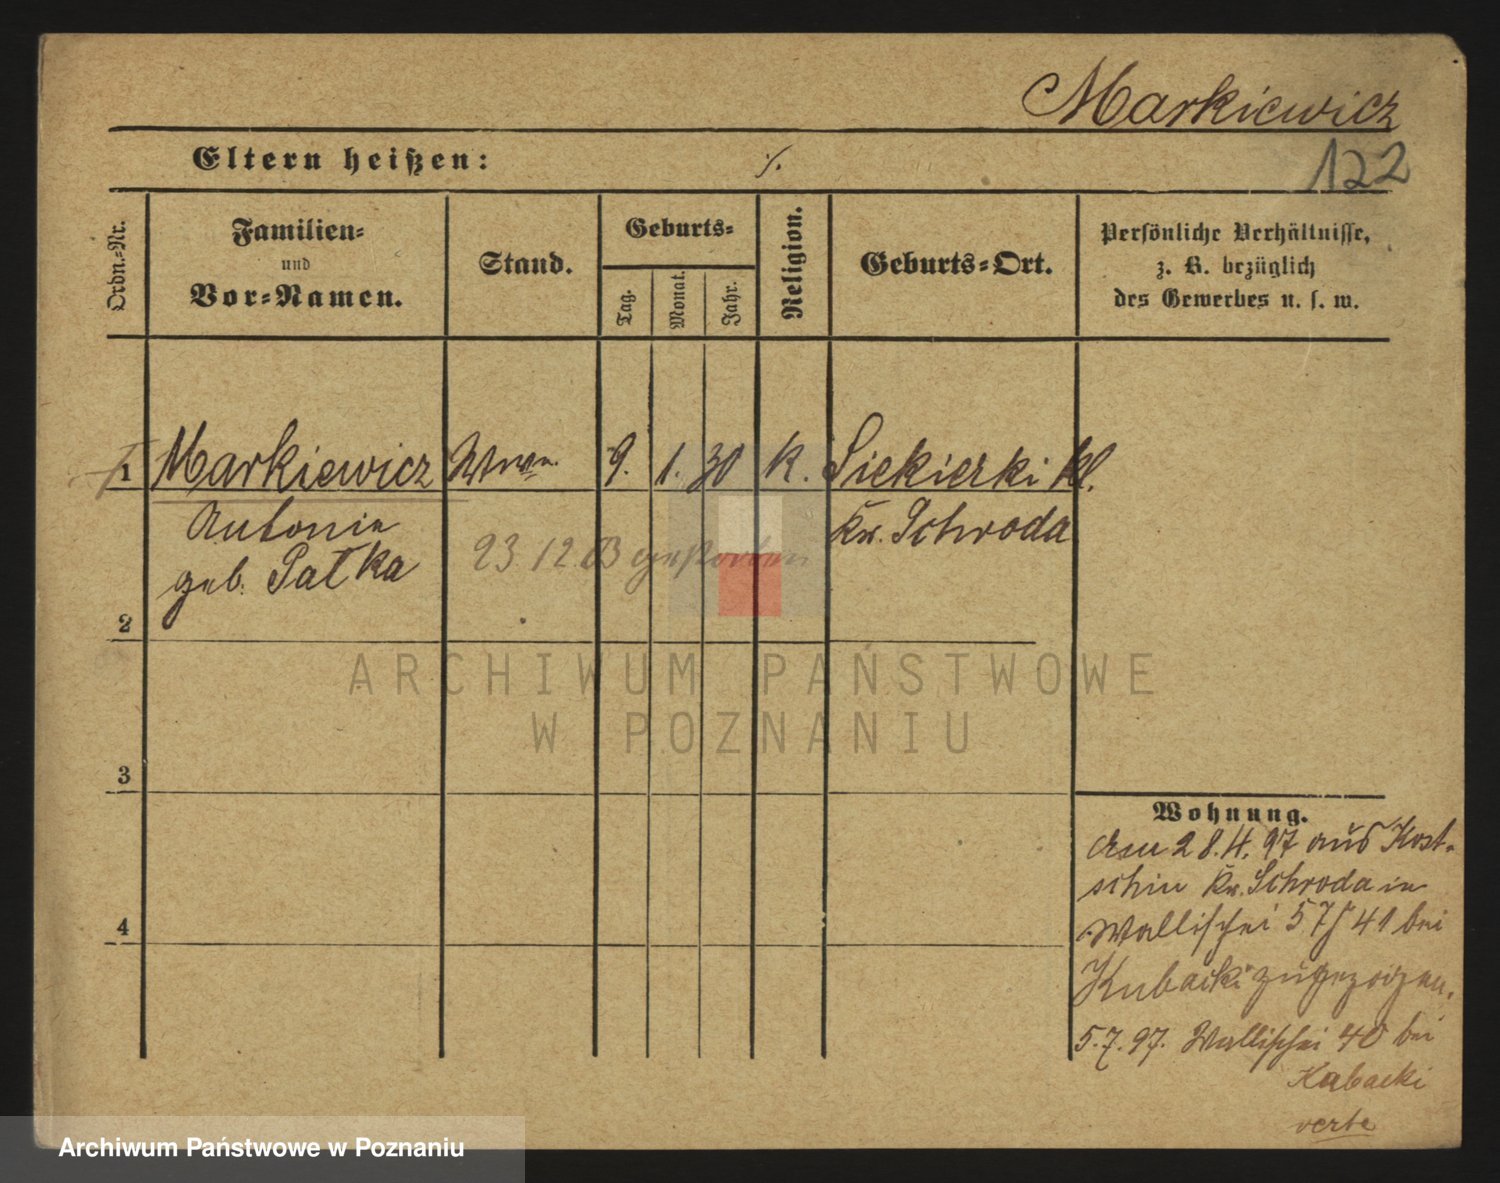 Markiewicz
122
Eltern heißen: ·/.
Ordn.-Nr.
Familien-
und
Vor-Namen.
Stand.
Geburts-
Tag.
Monat.
Jahr.
Religion.
Geburts-Ort.
Persönliche Verhältnisse,
z. B. bezüglich
des Gewerbes u. s. w.
1 Markiewicz Wwe. 9. 1. 30 K. Siekierki kl.
Antonie Kr. Schroda
geb. Patka
23 12 03 gestorben
2
3
4
Wohnung.
Am 28.4.97 aus Kost-
schin Kr. Schroda in
Wallischei 57/41 bei
Kubacki zugezogen.
5.7.97. Wallischei 40 bei
Kubacki
verte
ARCHIWUM PAŃSTWOWE
W POZNANIU
Archiwum Państwowe w Poznaniu